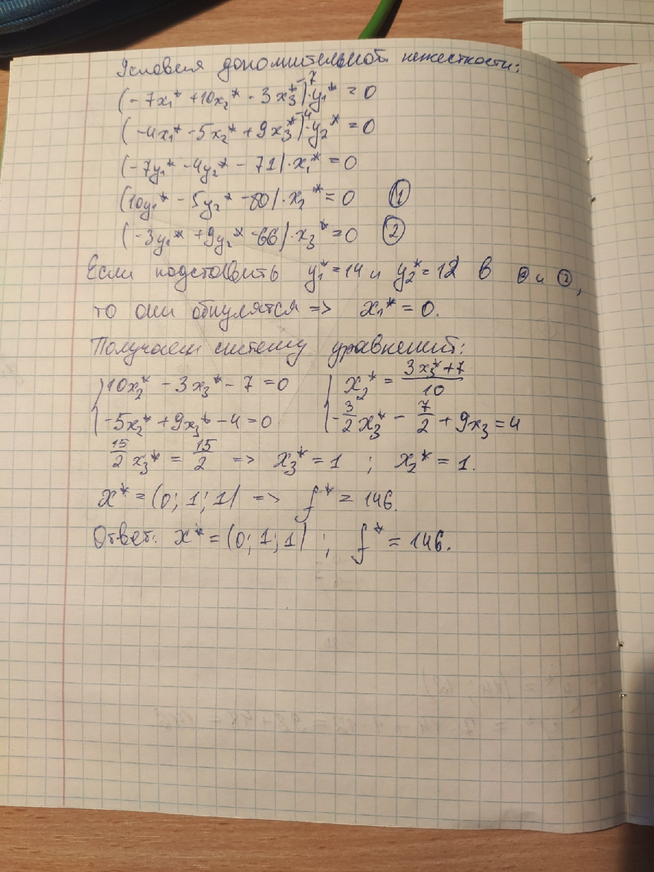 Условия дополнительной нежесткости:
(-7x₁* + 10x₂* - 3x₃* - 7)·y₁* = 0
(-4x₁* - 5x₂* + 9x₃* - 4)·y₂* = 0
(-7y₁* - 4y₂* - 71)·x₁* = 0
(10y₁* - 5y₂* - 80)·x₂* = 0 ①
(-3y₁* + 9y₂* - 66)·x₃* = 0 ②
Если подставить y₁* = 14 и y₂* = 12 в ① и ②,
то они обнулятся => x₁* = 0.
Получаем систему уравнений:
{10x₂* - 3x₃* - 7 = 0 {x₂* = (3x₃* + 7)/10
{-5x₂* + 9x₃* - 4 = 0 {-3/2 x₃* - 7/2 + 9x₃ = 4
15/2 x₃* = 15/2 => x₃* = 1 ; x₂* = 1.
x* = (0; 1; 1) => f* = 146.
Ответ: x* = (0; 1; 1) ; f* = 146.